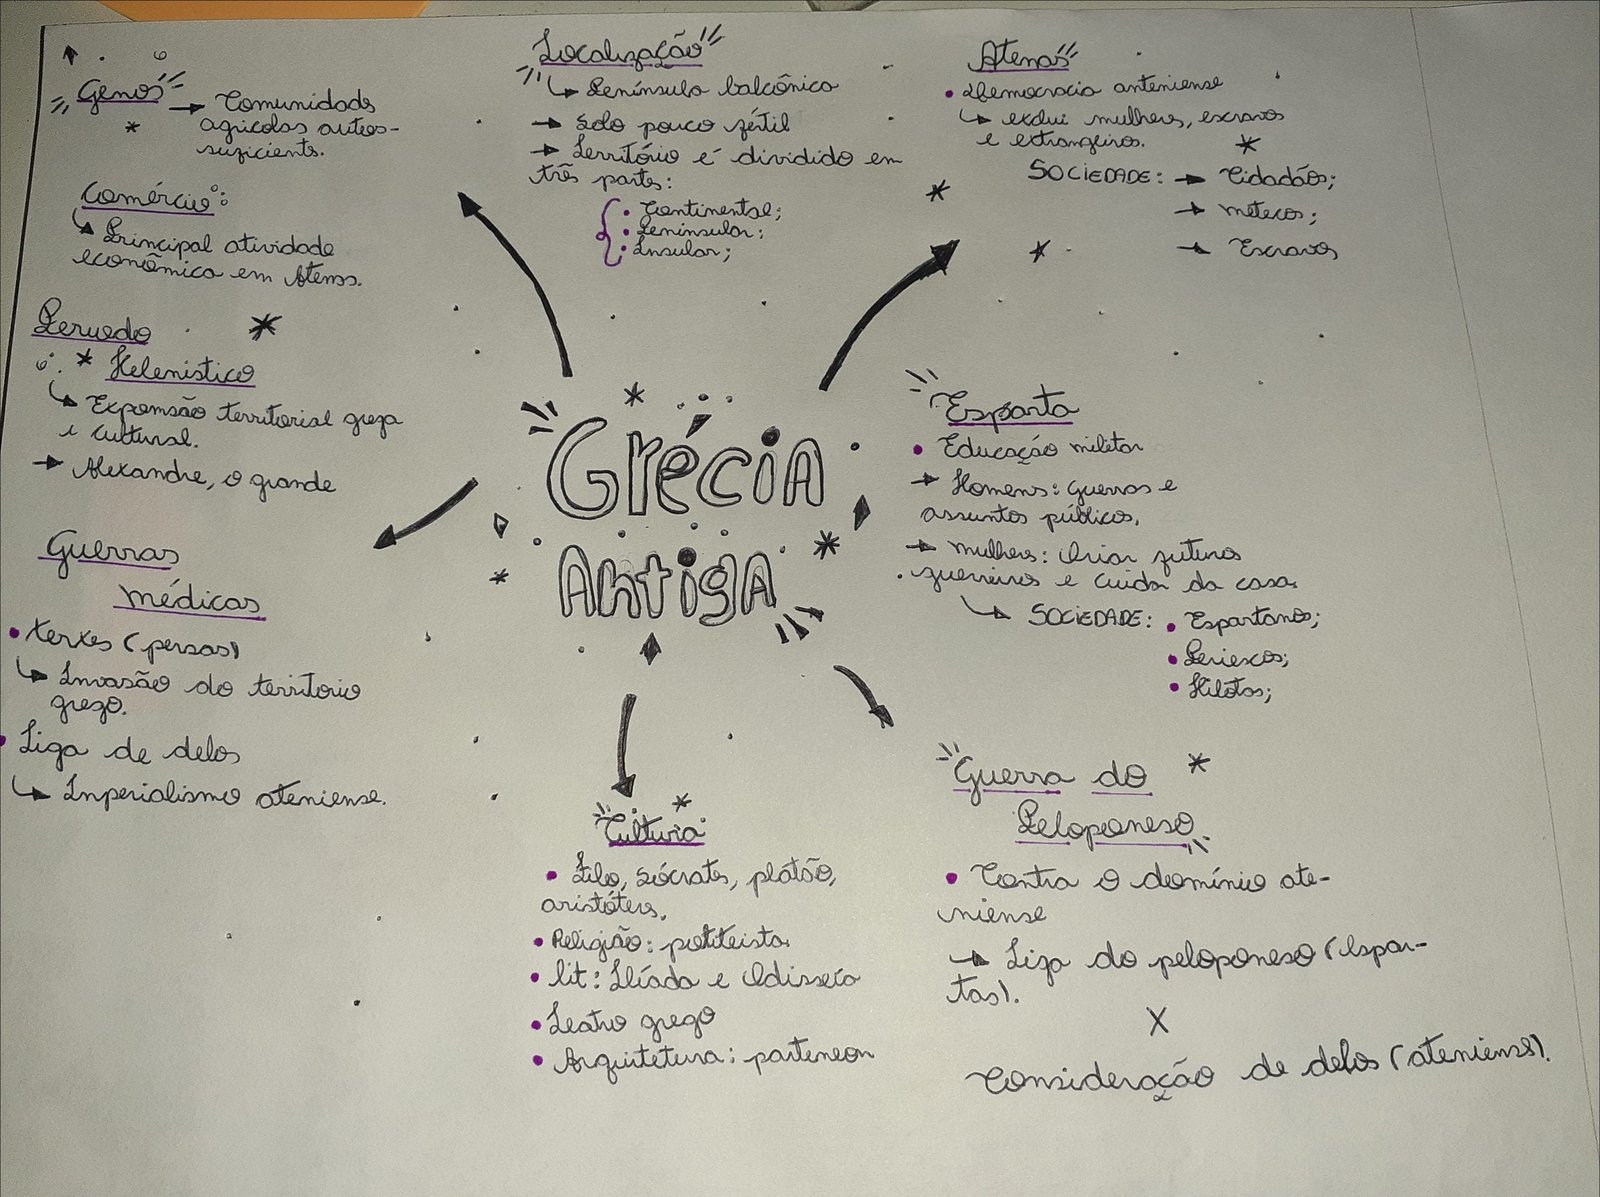 Genos
→ Comunidades
agricolas autos-
suficients.
Comércio:
Principal atividade
econômica em Atenas.
Período
* Helenistico
Expansão territorial grega
e cultural.
→ Alexandre, o grande
Guerras
médicas
• Xerxes (persas)
Invasão do territorio
grego.
• Liga de delos
Imperialismo ateniense.
Localização
Península balcônica
→ Solo pouco fértil
→ Território é dividido em
três partes:
• Continental;
• Peninsular;
• Insular;
Grécia
Antiga
Cultura
• Filo, Sócrates, platão,
aristóteles.
• Religião: politeista
• lit: Ilíada e Odisseia
• Teatro grego
• Arquitetura: partenon
Atenas
• Democracia anteniense
exclui mulheres, escravos
e extrangeiros.
SOCIEDADE: → Cidadãos;
→ metecos;
→ Escravos
Esparta
• Educação militar
→ Homens: guerras e
assuntos públicos.
→ mulheres: Criar futuros
guerreiros e cuidar da casa.
SOCIEDADE: • Espartanos;
• Periecos;
• Hilotas;
Guerra do
Peloponeso
• Contra o domínio ate-
niense
→ Liga do peloponeso (espar-
tas).
X
Consideração de delos (ateniense).